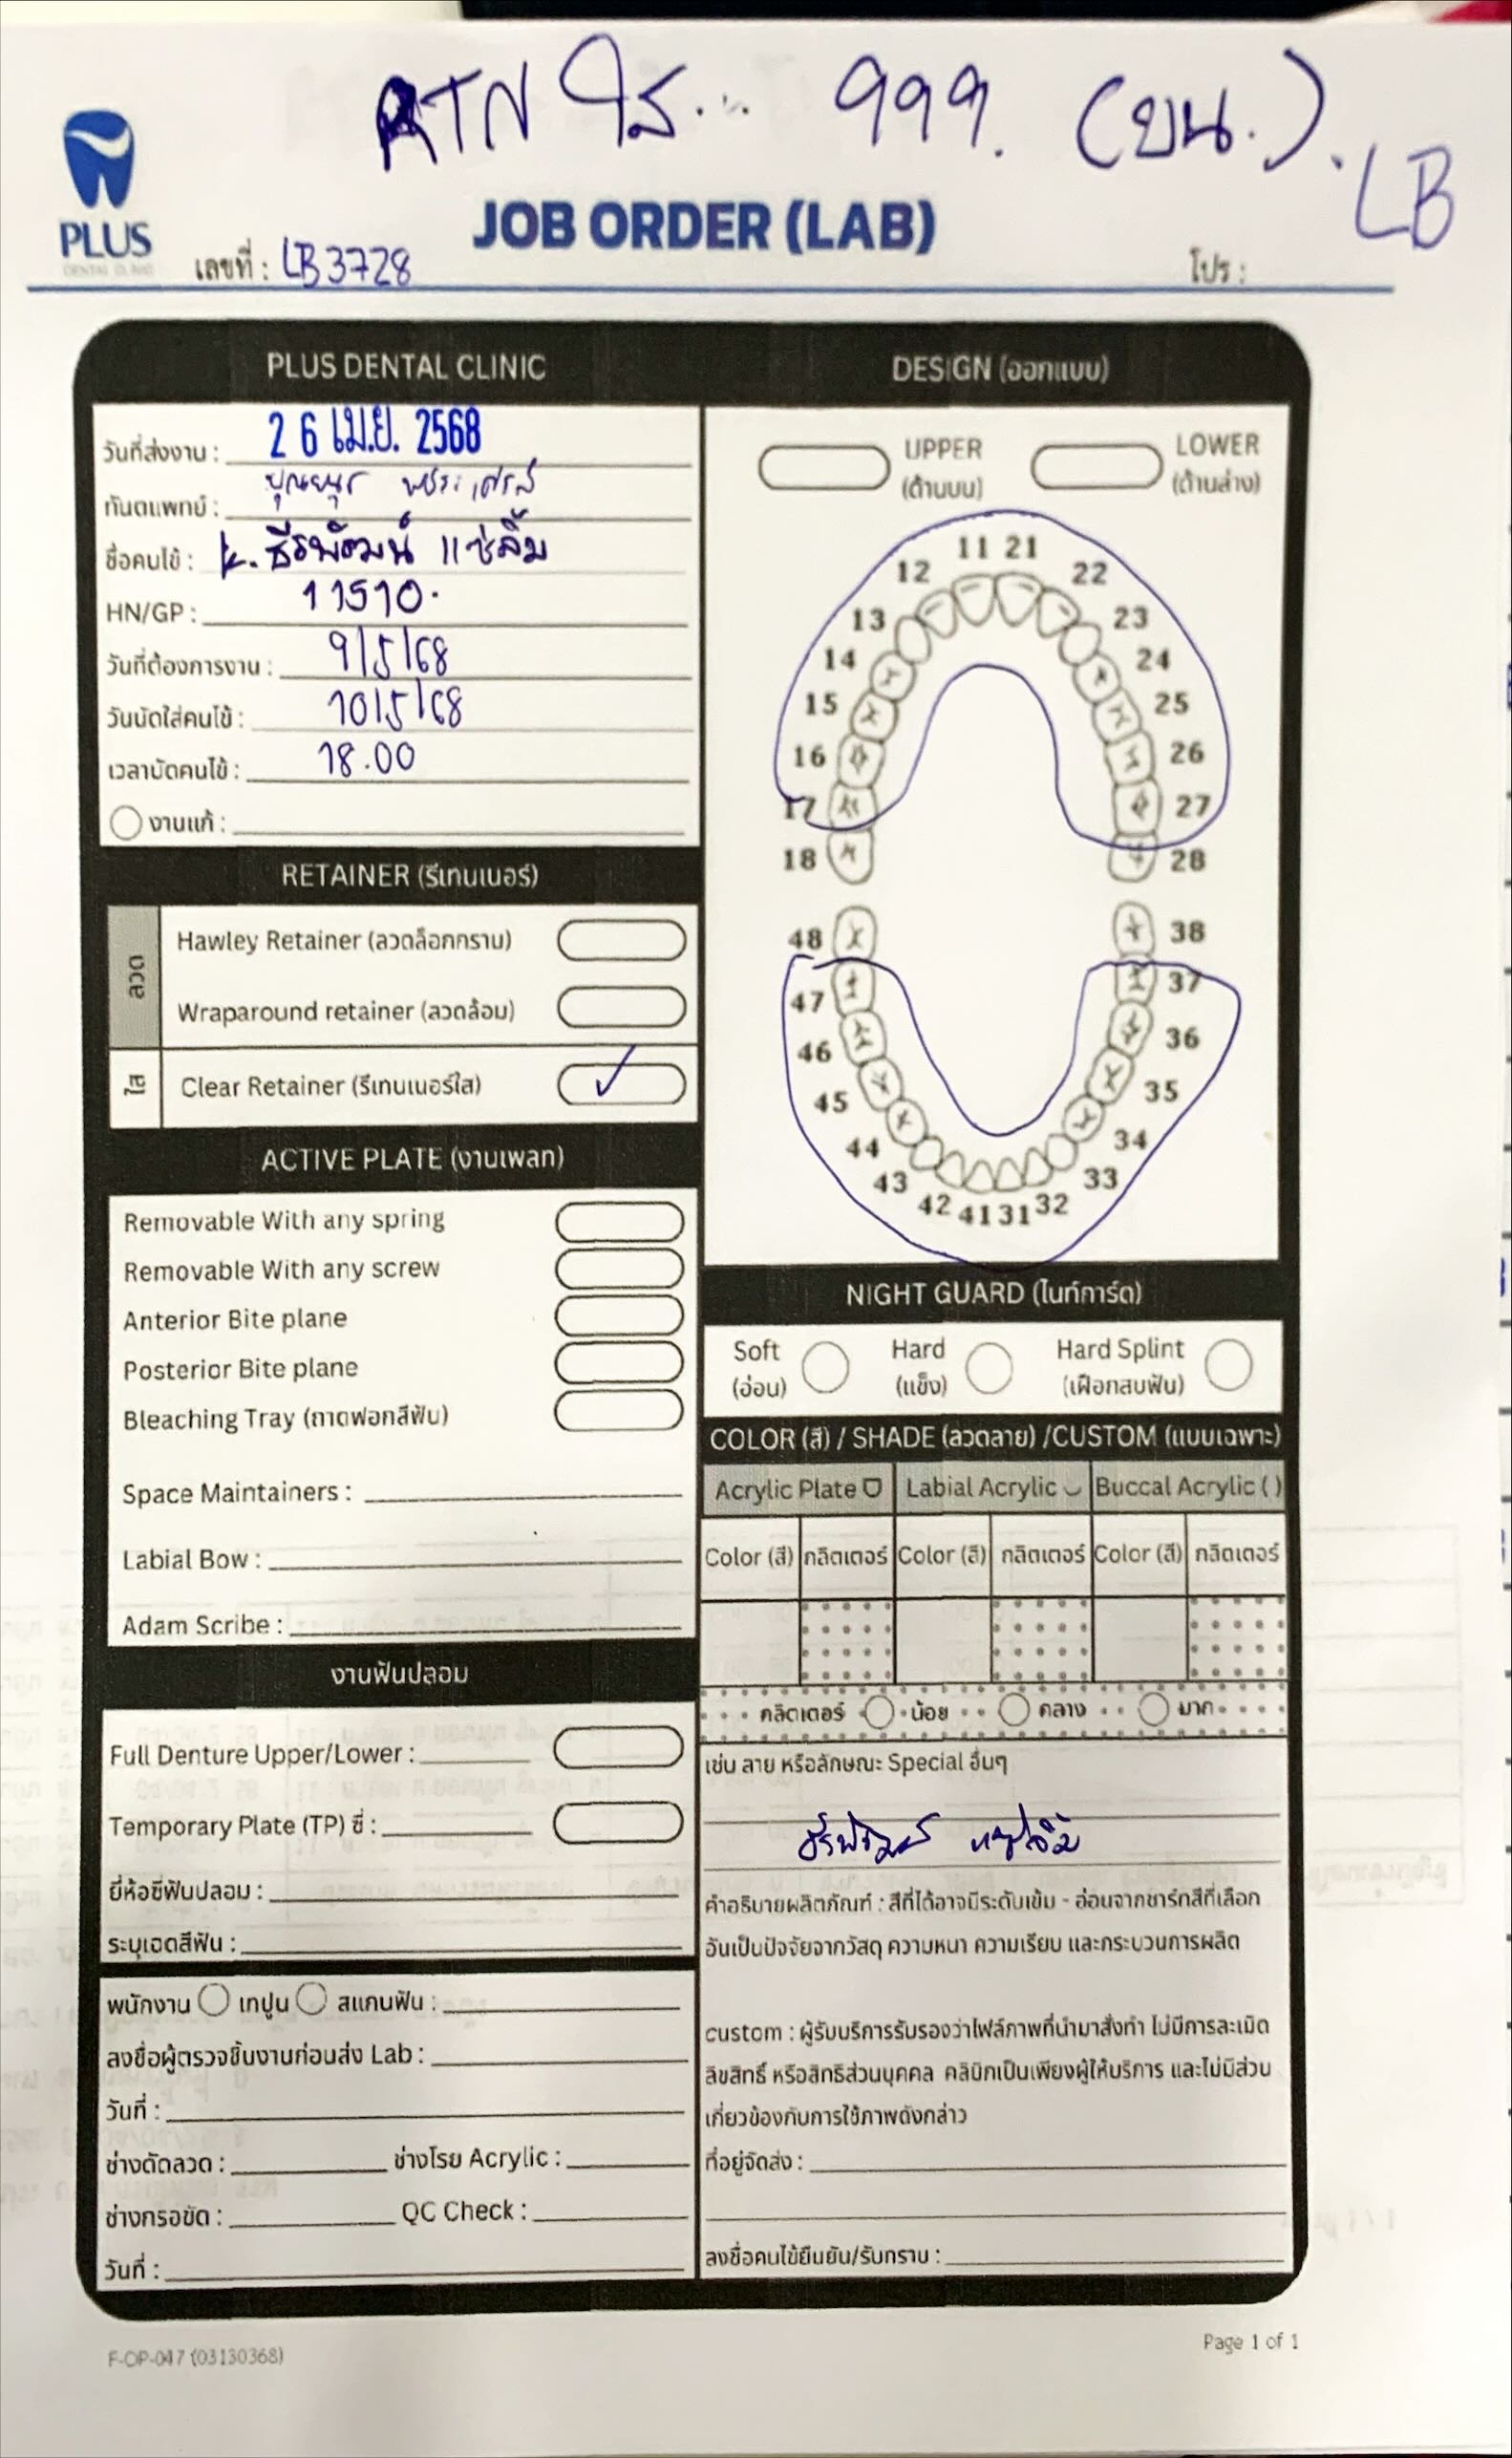 RTN ใส... 999. (บน.).
LB
PLUS
DENTAL CLINIC
JOB ORDER (LAB)
เลขที่ : LB3728
โปร :
PLUS DENTAL CLINIC
วันที่ส่งงาน : 26 เม.ย. 2568
ทันตแพทย์ :
ชื่อคนไข้ : K. ธีรพัฒน์ แซ่ลิ้ม
HN/GP : 11510.
วันที่ต้องการงาน : 9/5/68
วันนัดใส่คนไข้ : 10/5/68
เวลานัดคนไข้ : 18.00
งานแก้ :
RETAINER (รีเทนเนอร์)
ลวด
Hawley Retainer (ลวดล็อกกราม)
Wraparound retainer (ลวดล้อม)
ใส
Clear Retainer (รีเทนเนอร์ใส) ✓
ACTIVE PLATE (งานเพลท)
Removable With any spring
Removable With any screw
Anterior Bite plane
Posterior Bite plane
Bleaching Tray (ถาดฟอกสีฟัน)
Space Maintainers :
Labial Bow :
Adam Scribe :
งานฟันปลอม
Full Denture Upper/Lower :
Temporary Plate (TP) ซี่ :
ยี่ห้อซี่ฟันปลอม :
ระบุเฉดสีฟัน :
พนักงาน เทปูน สแกนฟัน :
ลงชื่อผู้ตรวจชิ้นงานก่อนส่ง Lab :
วันที่ :
ช่างดัดลวด : ช่างโรย Acrylic :
ช่างกรอขัด : QC Check :
วันที่ :
DESIGN (ออกแบบ)
UPPER (ด้านบน)
LOWER (ด้านล่าง)
11 21
12 22
13 23
14 24
15 25
16 26
17 27
18 28
48 38
47 37
46 36
45 35
44 34
43 33
42 41 31 32
NIGHT GUARD (ไนท์การ์ด)
Soft (อ่อน)
Hard (แข็ง)
Hard Splint (เฝือกสบฟัน)
COLOR (สี) / SHADE (ลวดลาย) /CUSTOM (แบบเฉพาะ)
Acrylic Plate Labial Acrylic Buccal Acrylic ( )
Color (สี) กลิตเตอร์ Color (สี) กลิตเตอร์ Color (สี) กลิตเตอร์
กลิตเตอร์ น้อย กลาง มาก
เช่น ลาย หรือลักษณะ Special อื่นๆ
ธีรพัฒน์ แซ่ลิ้ม
คำอธิบายผลิตภัณฑ์ : สีที่ได้อาจมีระดับเข้ม - อ่อนจากชาร์ทสีที่เลือก
อันเป็นปัจจัยจากวัสดุ ความหนา ความเรียบ และกระบวนการผลิต
custom : ผู้รับบริการรับรองว่าไฟล์ภาพที่นำมาสั่งทำ ไม่มีการละเมิด
ลิขสิทธิ์ หรือสิทธิส่วนบุคคล คลินิกเป็นเพียงผู้ให้บริการ และไม่มีส่วน
เกี่ยวข้องกับการใช้ภาพดังกล่าว
ที่อยู่จัดส่ง :
ลงชื่อคนไข้ยืนยัน/รับทราบ :
F-OP-047 (03130368)
Page 1 of 1